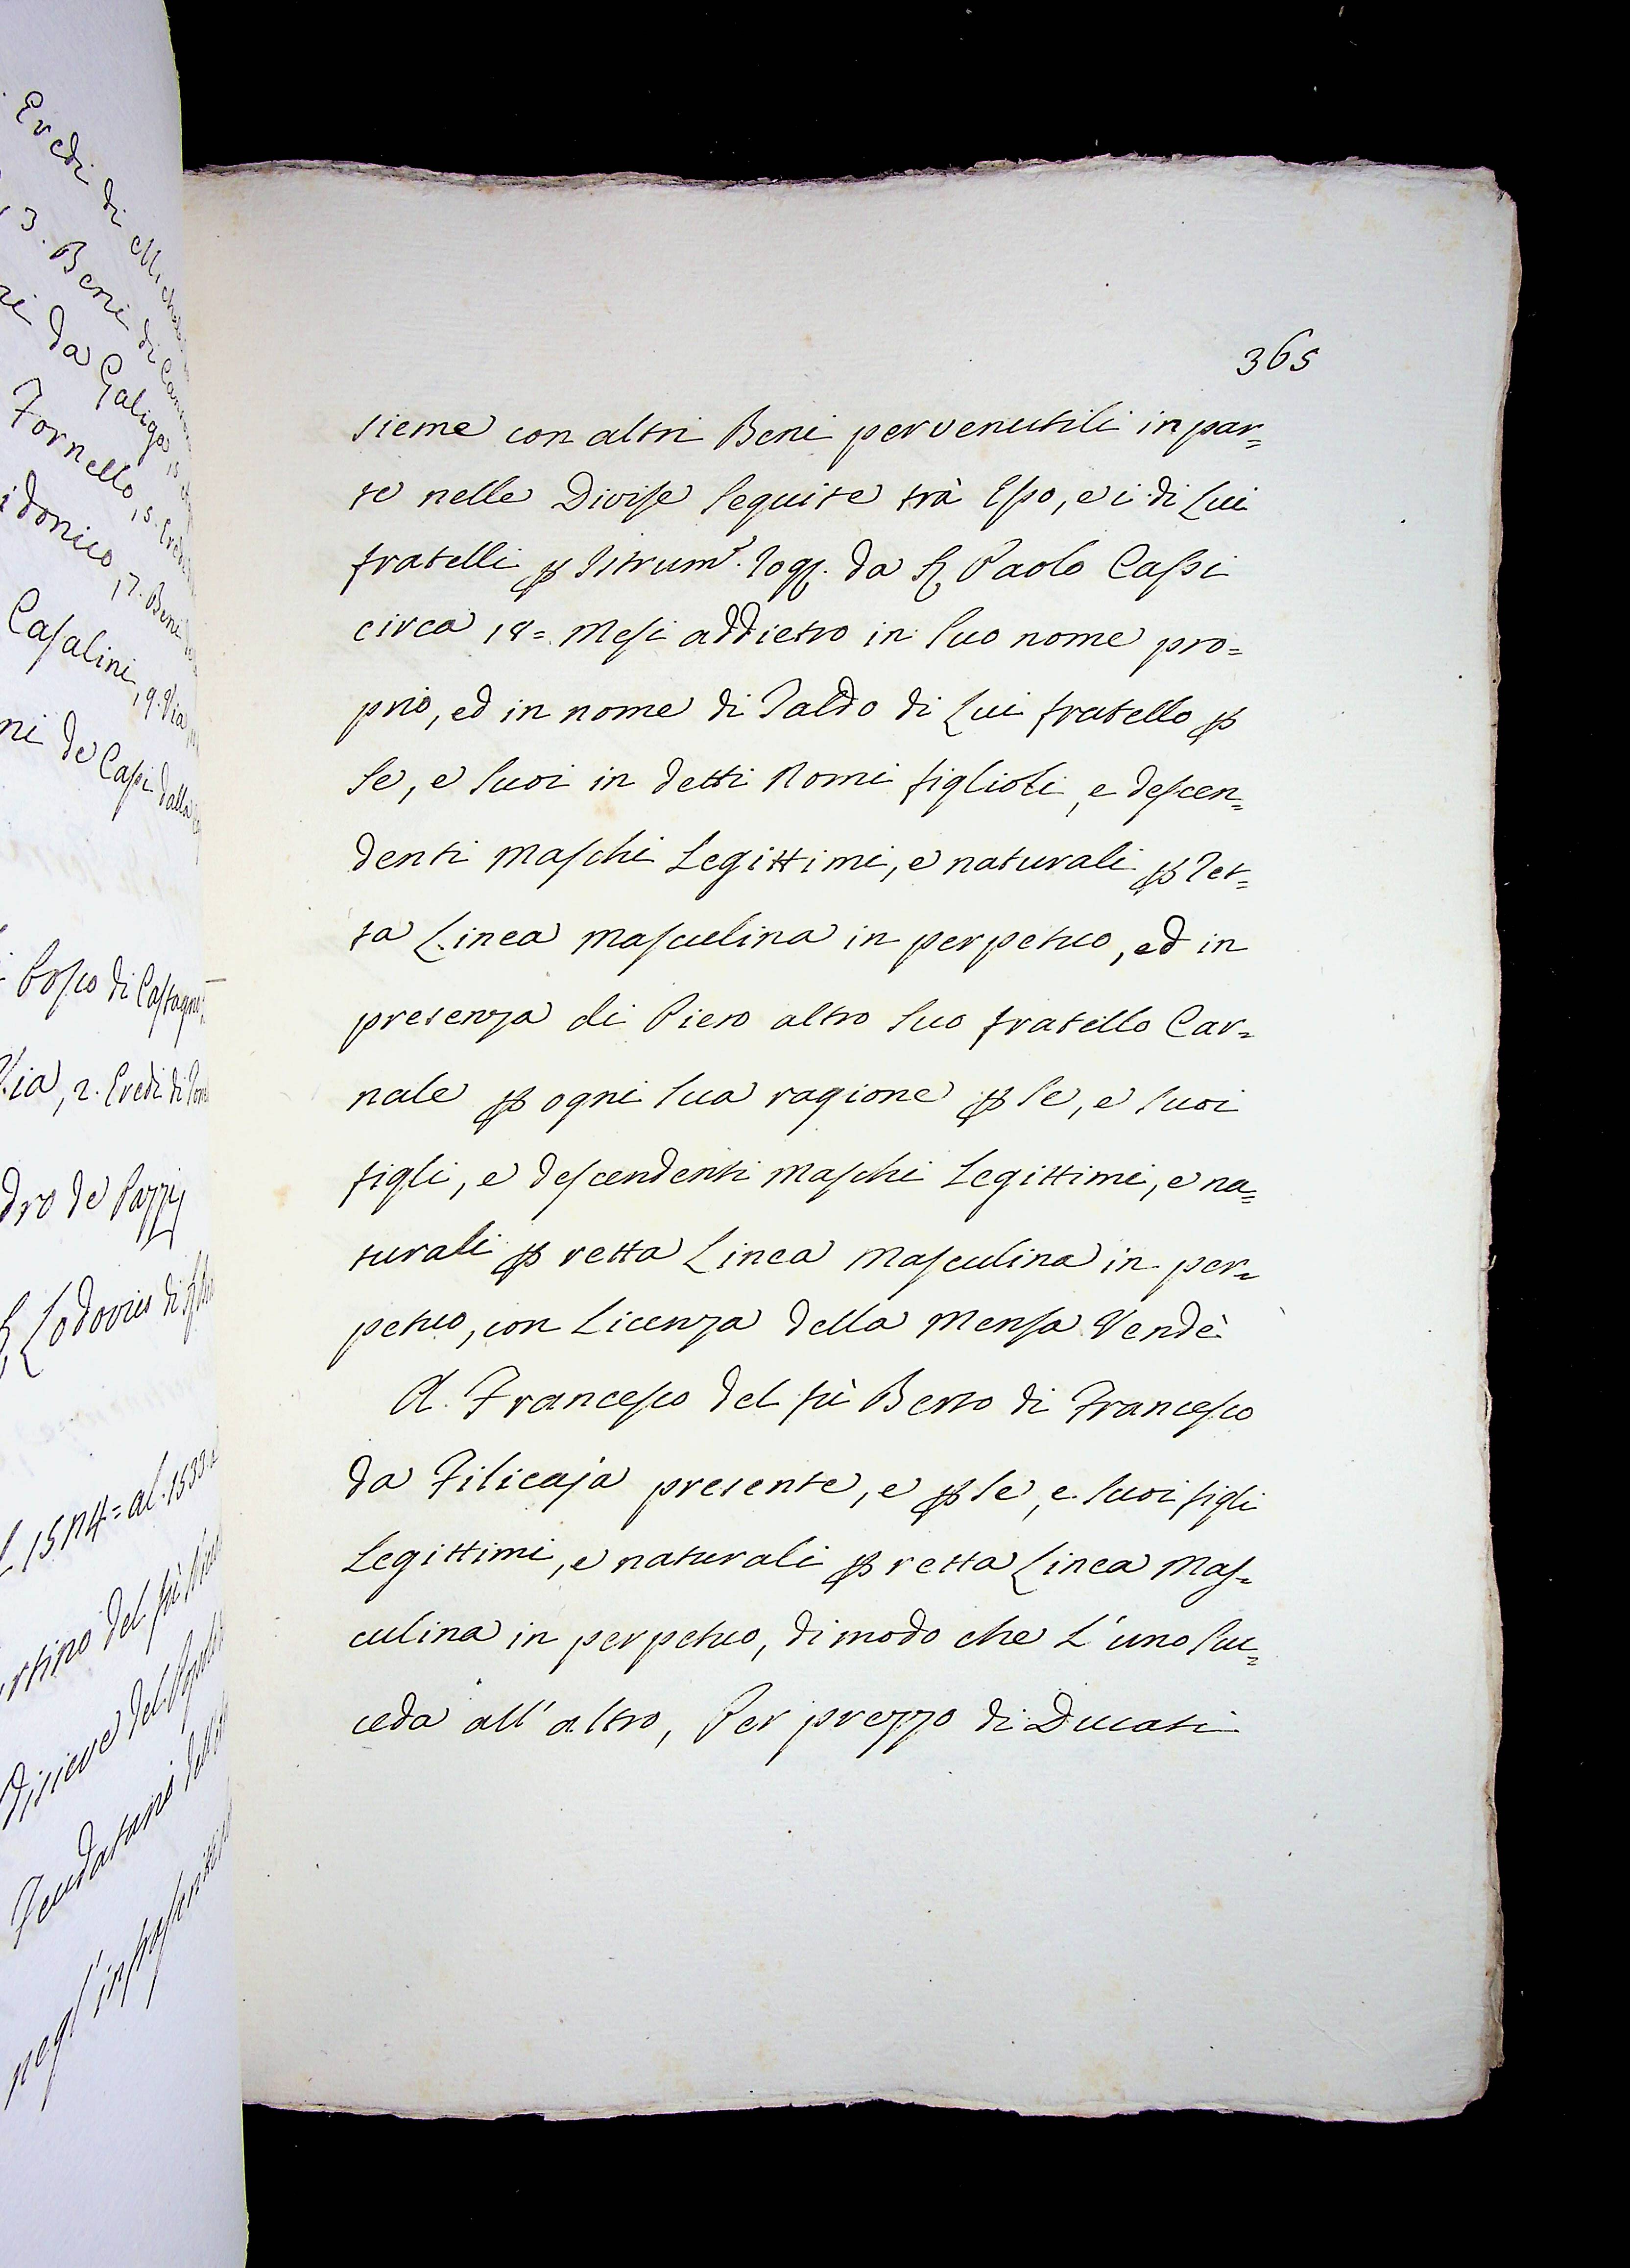 365
sieme con altri Beni pervenutili in par=
te nelle Divise seguite trà Esso, e i di Lui
fratelli ꝑ Istrumᵒ. Rogᵒ. da Sʳ Paolo Cassi
circa 18= Mesi addietro in suo nome pro=
prio, ed in nome di Taldo di Lui fratello ꝑ
se, e suoi in detti Nomi figlioli, e descen=
denti Maschi Legittimi, e naturali ꝑ Ret=
ta Linea Masculina in perpetuo, ed in
presenza di Piero altro suo fratello Car=
nale ꝑ ogni sua ragione ꝑ se, e suoi
figli, e descendenti Maschi Legittimi, e na=
turali ꝑ retta Linea Masculina in per=
petuo, con Licenza della Mensa Vendè
A Francesco del fù Berto di Francesco
da Filicaja presente, e ꝑ se, e suoi figli
Legittimi, e naturali ꝑ retta Linea Mas=
culina in perpetuo, di modo che L'uno suc=
ceda all'altro, Per prezzo di Ducati
Eredi di
3. Beni di
da Galiga
Fornello, 15.
17. Beni
Casalini, 9. Via
de Cassi dalla
Bosco di
Via, 2. Eredi di
de Pazzi
Lodovico di
al. 1533.
del fù
del
Feudatari